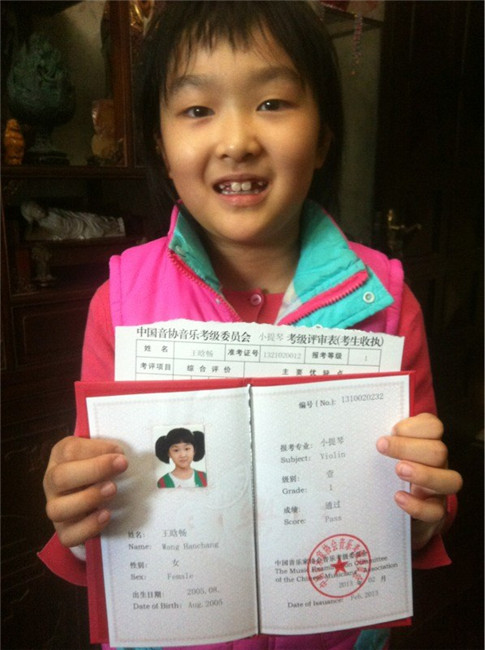 中国音协音乐考级委员会 小提琴 考级评审表(考生收执)
姓 名 王晗畅 准考证号 1321020012 报考等级 1
考评项目 综 合 评 价 主 要 优 缺 点
编号(No.): 1310020232
报考专业: 小提琴
Subject: Violin
级别: 壹
Grade: 1
成绩: 通过
Score: Pass
姓名: 王晗畅
Name: Wang Hanchang
性别: 女
Sex: Female
出生日期 2005.08.
Date of Birth: Aug.2005
中国音乐家协会音乐考级委员会
The Music Examination Committee
of the Chinese Musicians Association
2013 年 02 月
Date of Issuance: Feb.2013